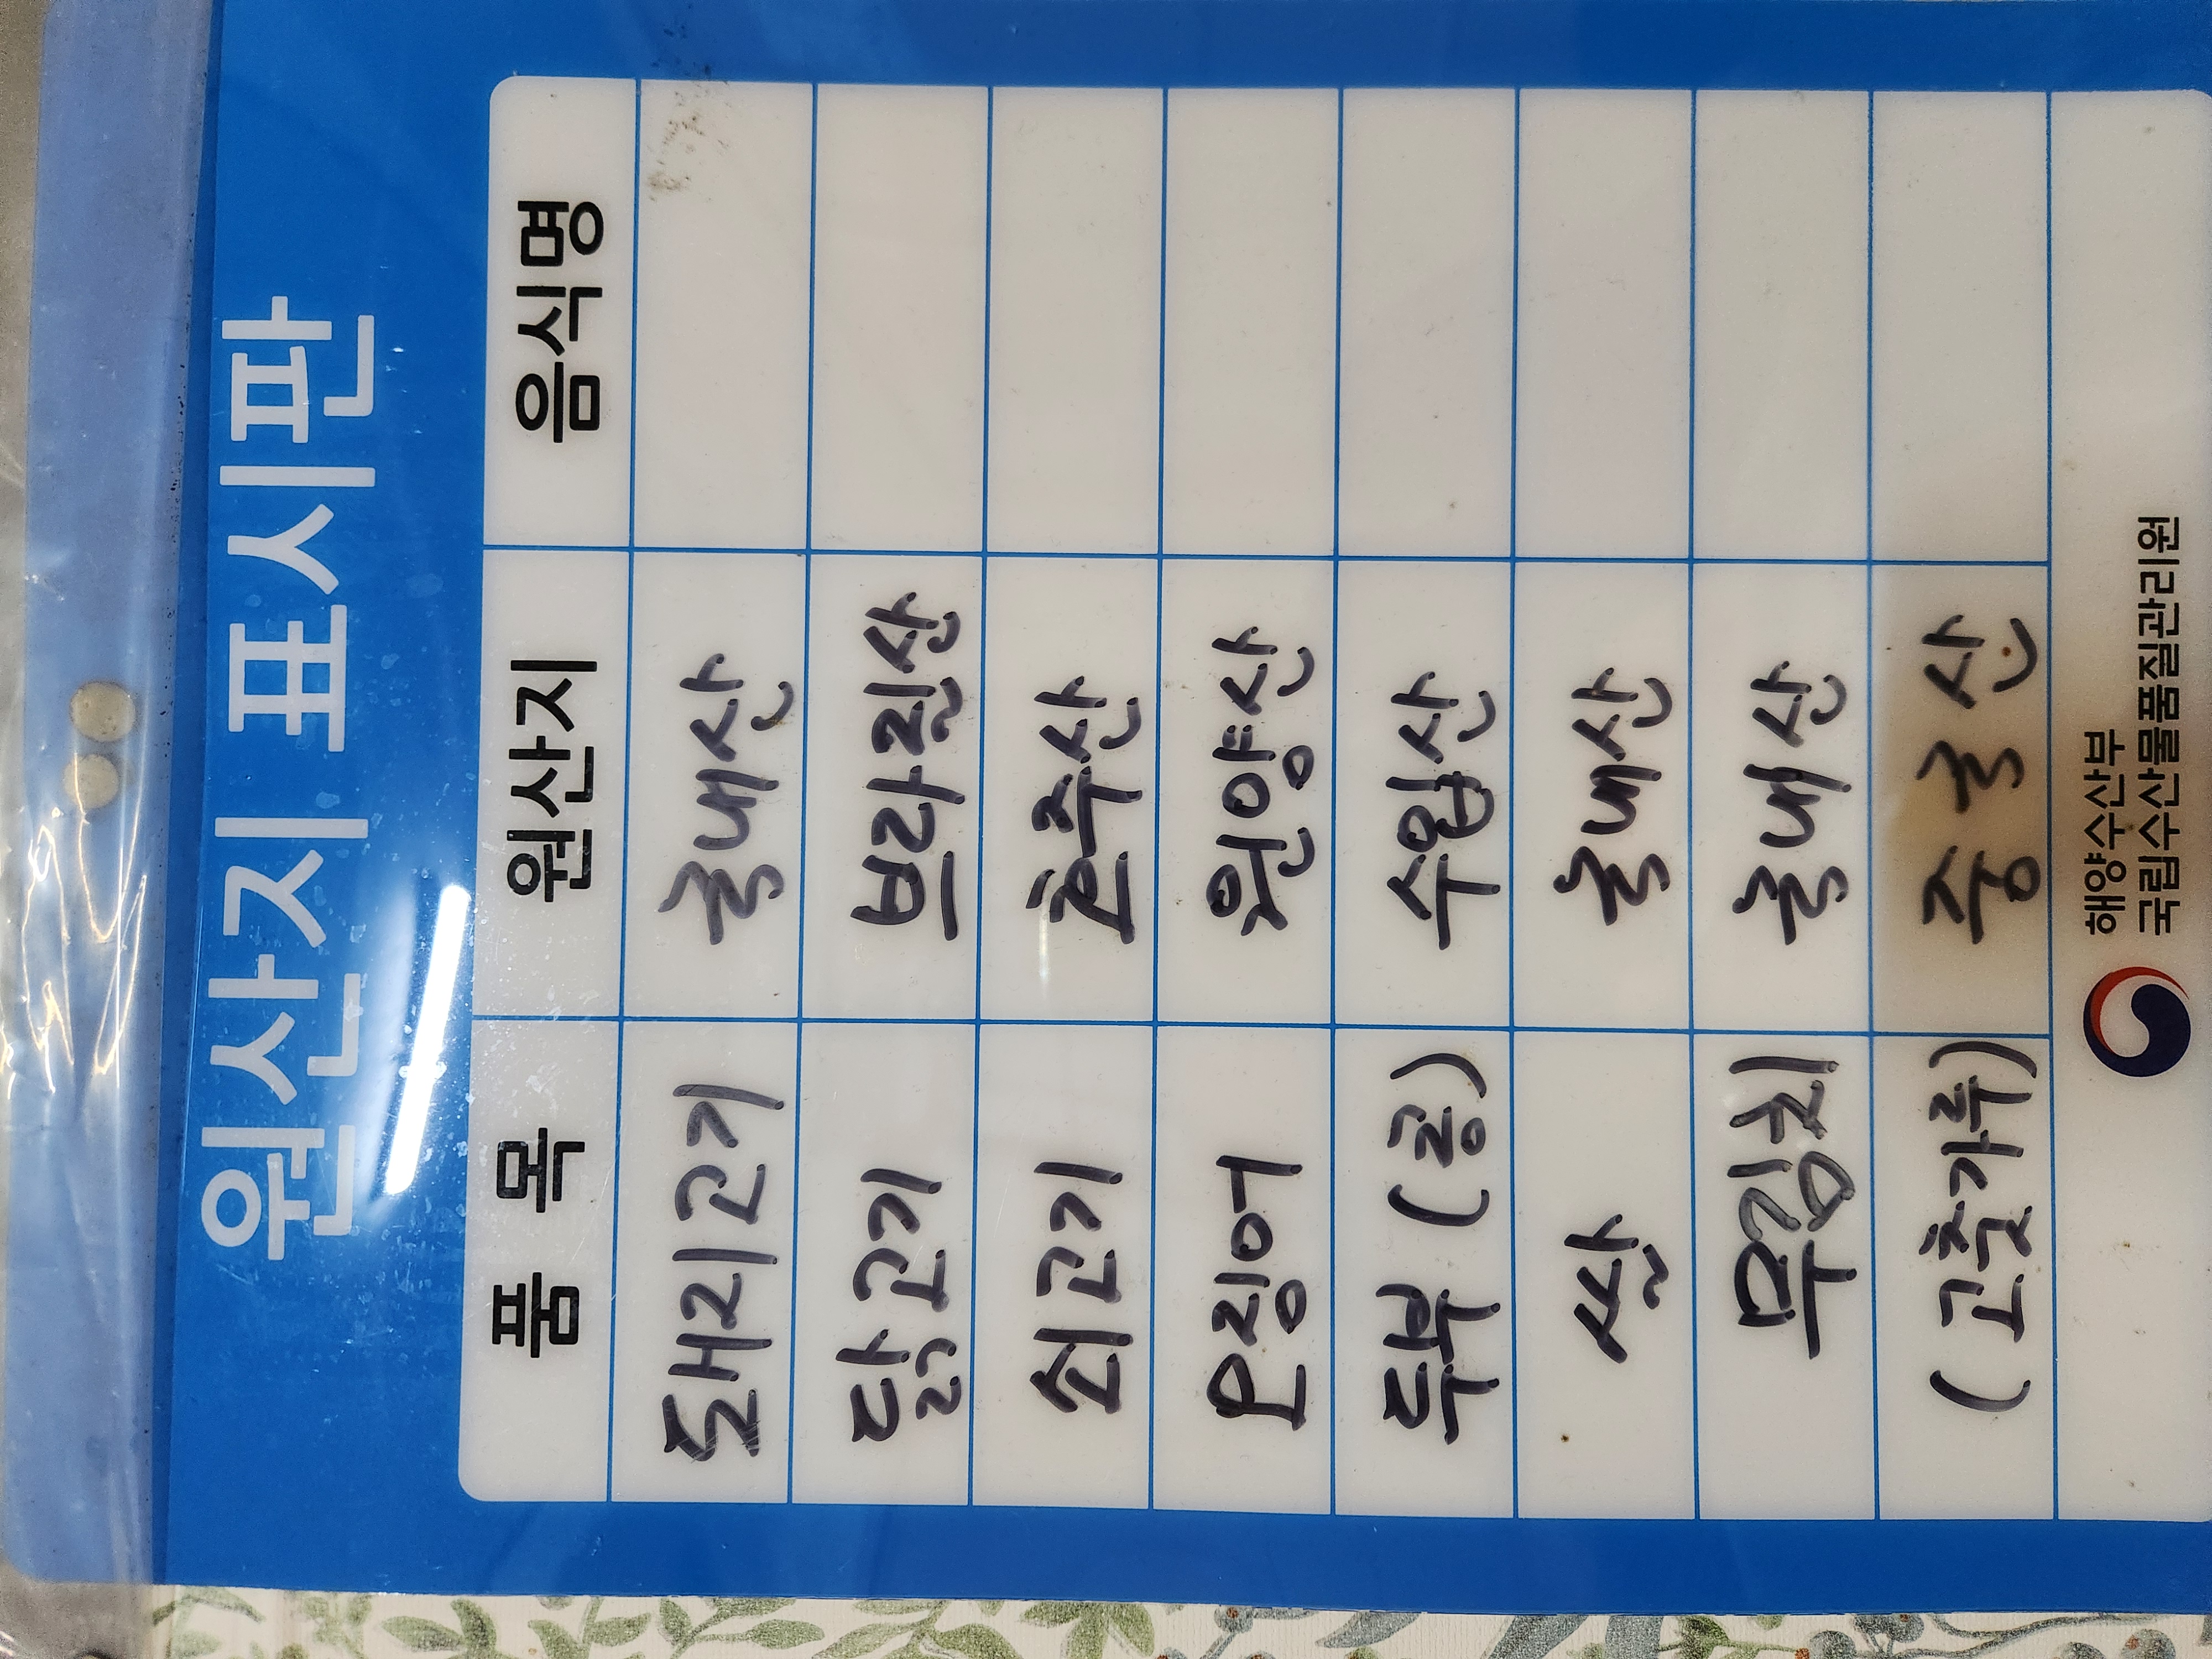 원산지 표시판
품 목 원산지 음식명
돼지고기 국내산
닭고기 브라질산
쇠고기 호주산
오징어 원양산
두부 (콩) 수입산
쌀 국내산
무김치 국내산
(고춧가루) 중국산
해양수산부
국립수산물품질관리원